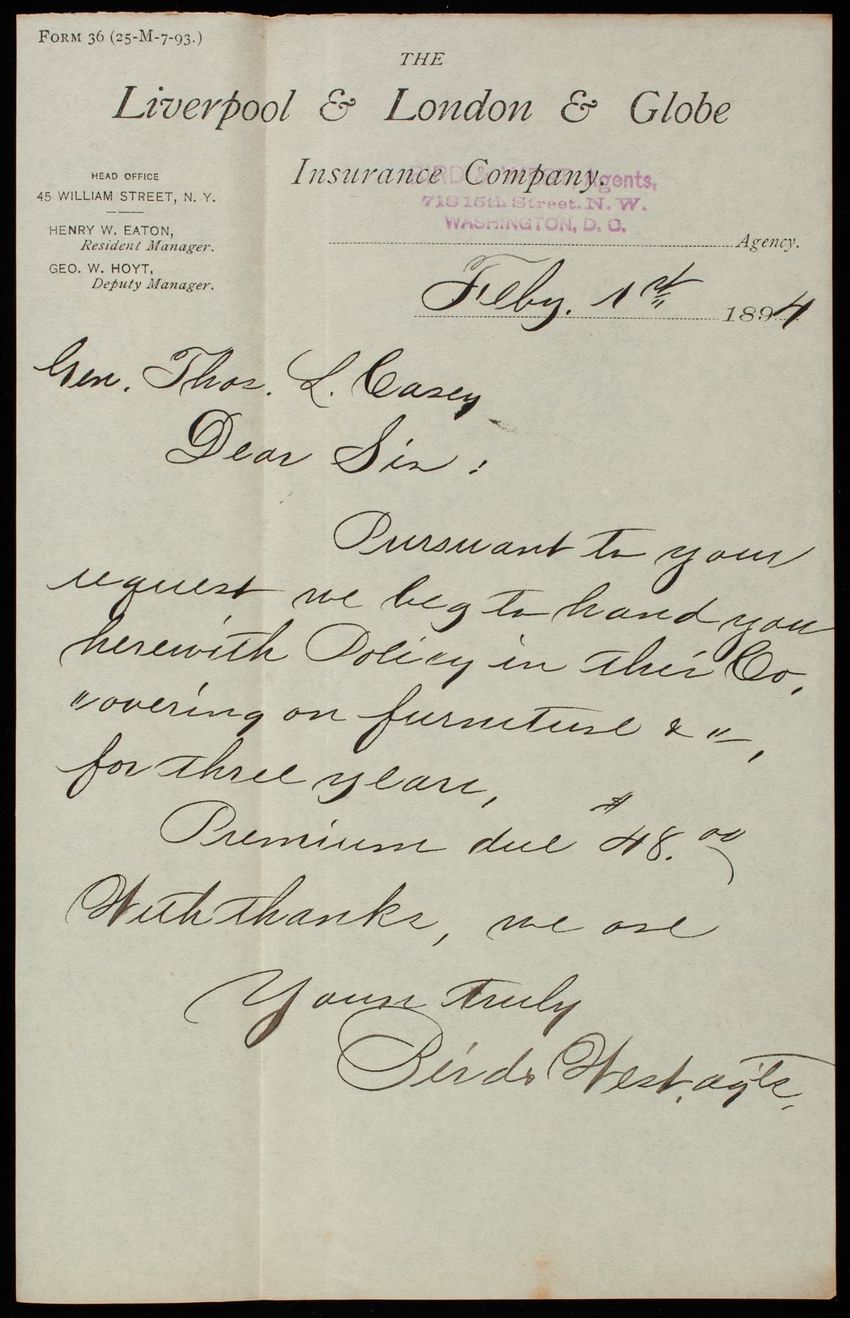 FORM 36 (25-M-7-93.)
THE
Liverpool & London & Globe
Insurance Company.
HEAD OFFICE
45 WILLIAM STREET, N. Y.
HENRY W. EATON,
Resident Manager.
GEO. W. HOYT,
Deputy Manager.
Agents,
718 15th Street. N. W.
WASHINGTON, D. C.
Agency.
Feby. 1st 1894
Gen. Thos. L. Casey
Dear Sir:
Pursuant to your
request we beg to hand you
herewith Policy in this Co.
covering on furniture &c,
for three years,
Premium due $48.00
With thanks, we are
Yours truly
Bird & West, agts.